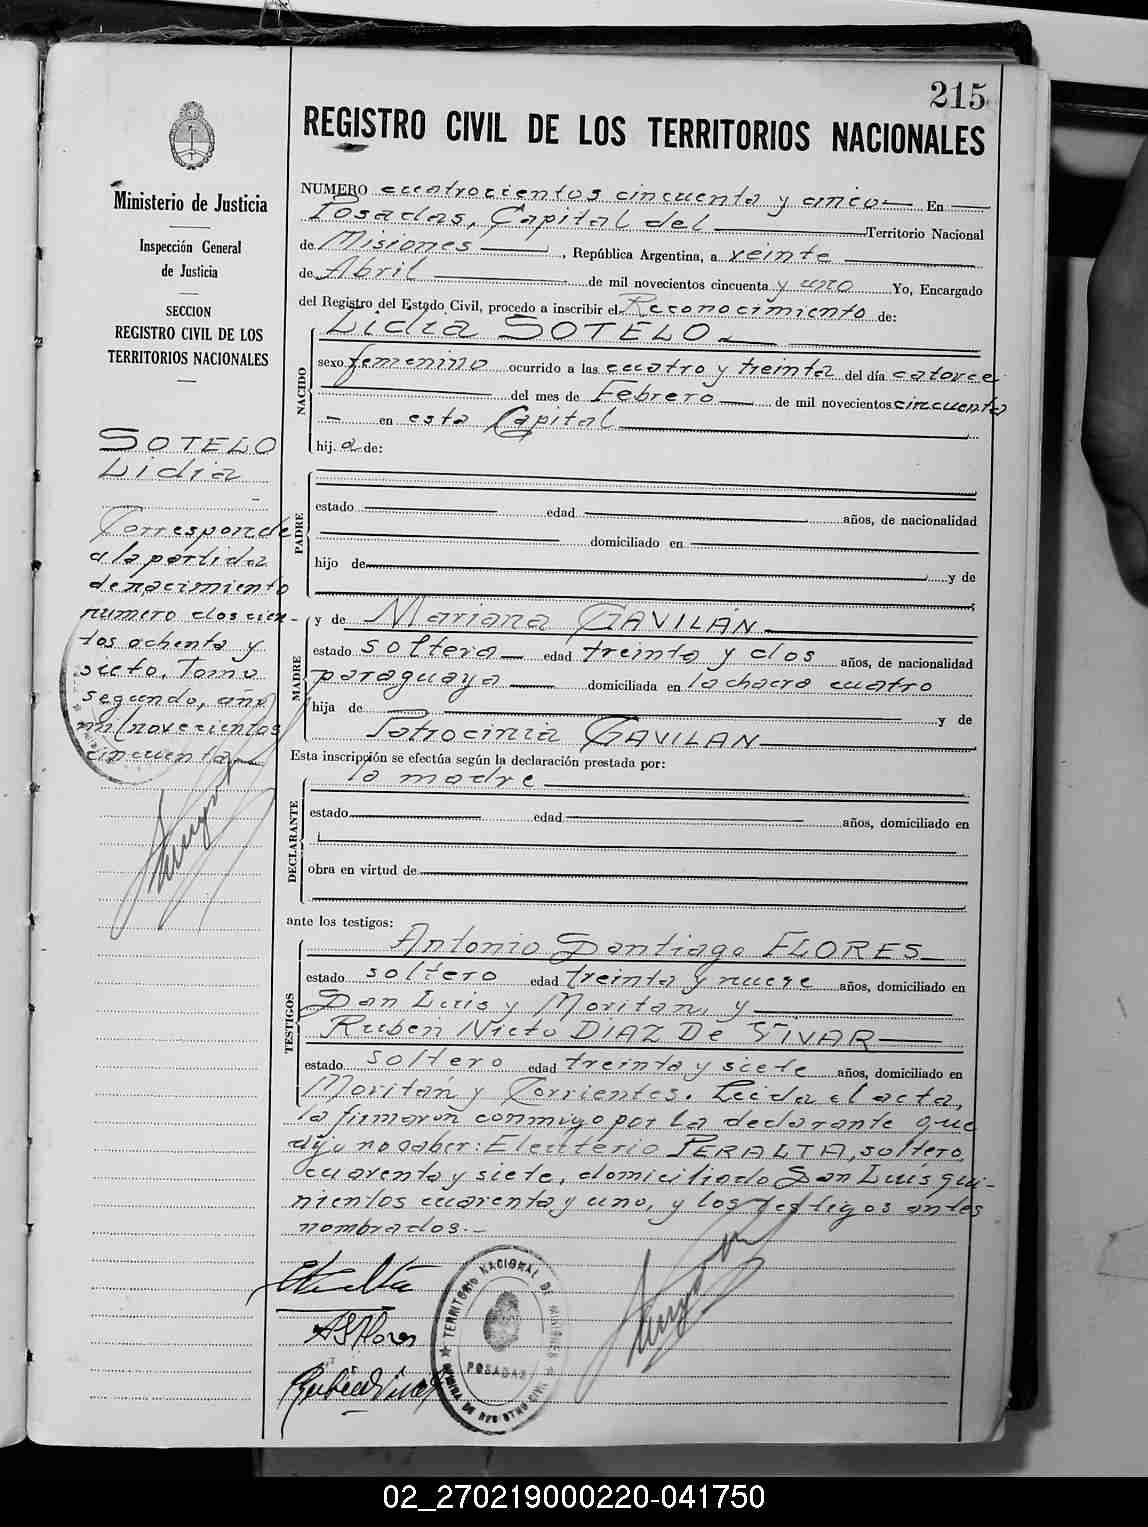 215
REGISTRO CIVIL DE LOS TERRITORIOS NACIONALES
Ministerio de Justicia
Inspección General
de Justicia
SECCION
REGISTRO CIVIL DE LOS
TERRITORIOS NACIONALES
SOTELO
Lidia
Corresponde
a la partida
de nacimiento
numero doscien-
tos ochenta y
siete, Tomo
segundo, año
mil novecientos
cincuenta
NUMERO cuatrocientos cincuenta y cinco En
Posadas, Capital del Territorio Nacional
de Misiones, República Argentina, a veinte
de Abril de mil novecientos cincuenta y uno Yo, Encargado
del Registro del Estado Civil, procedo a inscribir el Reconocimiento de:
Lidia SOTELO
NACIDO
sexo femenino ocurrido a las cuatro y treinta del día catorce
del mes de Febrero de mil novecientos cincuenta
en esta Capital
hij.a de:
PADRE
estado edad años, de nacionalidad
domiciliado en
hijo de y de
MADRE
y de Mariana GAVILÁN
estado soltera edad treinta y dos años, de nacionalidad
paraguaya domiciliada en la chacra cuatro
hija de y de
Patrocinia GAVILAN
Esta inscripción se efectúa según la declaración prestada por:
la madre
DECLARANTE
estado edad años, domiciliado en
obra en virtud de
ante los testigos:
TESTIGOS
Antonio Santiago FLORES
estado soltero edad treinta y nueve años, domiciliado en
San Luis y Moritan, y
Ruben Nieto DIAZ De VIVAR
estado soltero edad treinta y siete años, domiciliado en
Moritán y Corrientes. Leida el acta,
la firmaron conmigo por la declarante que
dijo no saber: Eleuterio PERALTA, soltero,
cuarenta y siete, domiciliado San Luis qui-
nientos cuarenta y uno, y los testigos antes
nombrados.-
ASFlores
TERRITORIO NACIONAL DE MISIONES
POSADAS
02_270219000220-041750